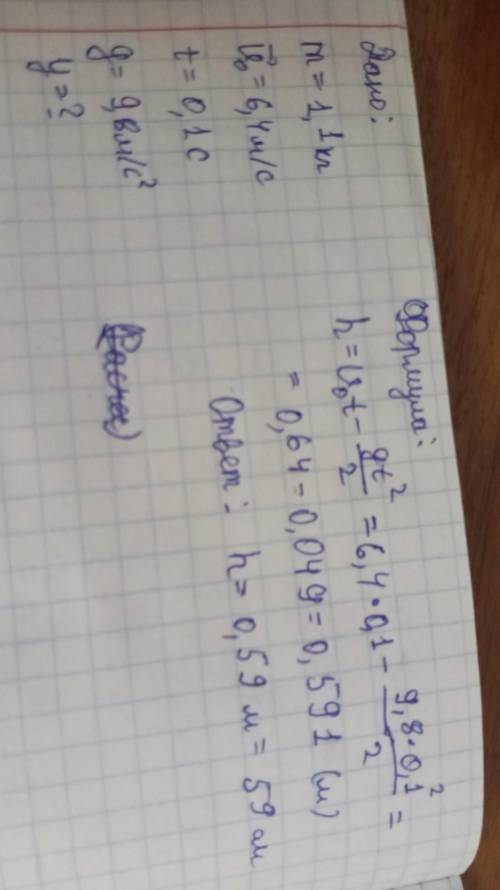 Дано:
m = 1,1 кг
v⃗₀ = 6,4 м/с
t = 0,1 с
g = 9,8 м/с²
y = ?
Формула:
h = v₀t - gt²/2 = 6,4 · 0,1 - 9,8·0,1²/2 =
= 0,64 - 0,049 = 0,591 (м)
Ответ: h = 0,59 м = 59 см